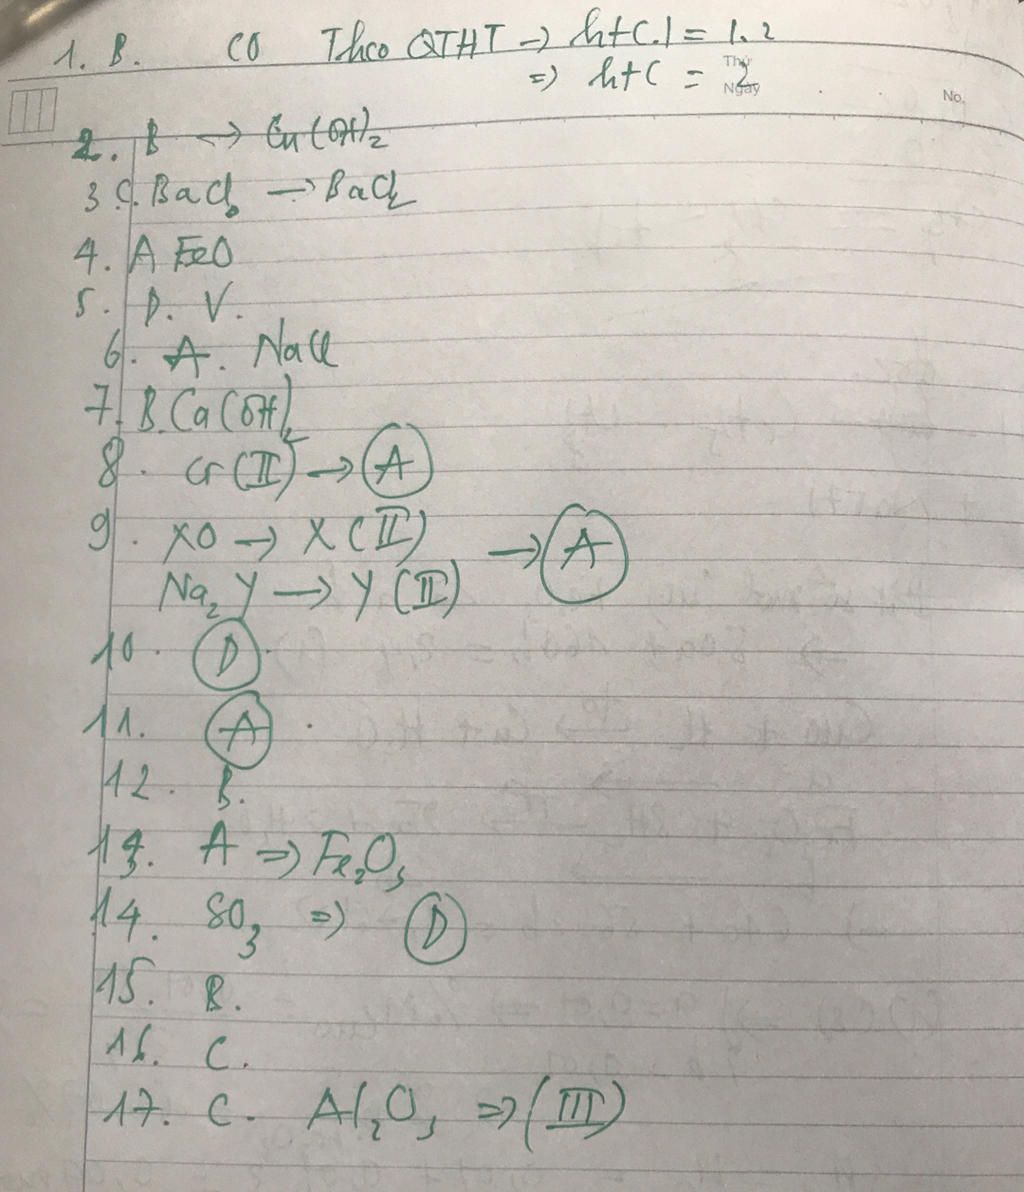 1. B. CO Theo QTHT → htC.1 = 1.2
⇒ htC = 2
Thứ
Ngày
No.
2. B → Cu(OH)2
3 C. BaCl → BaCl2
4. A FeO
5. D. V.
6. A. NaCl
7. B. Ca(OH)2
8. Cr(II) → A
9. XO → X(II)
→ A
Na2Y → Y(II)
10. D
11. A
12. B.
13. A ⇒ Fe2O3
14. SO3 ⇒ D
15. B.
16. C.
17. C. Al2O3 ⇒ (III)